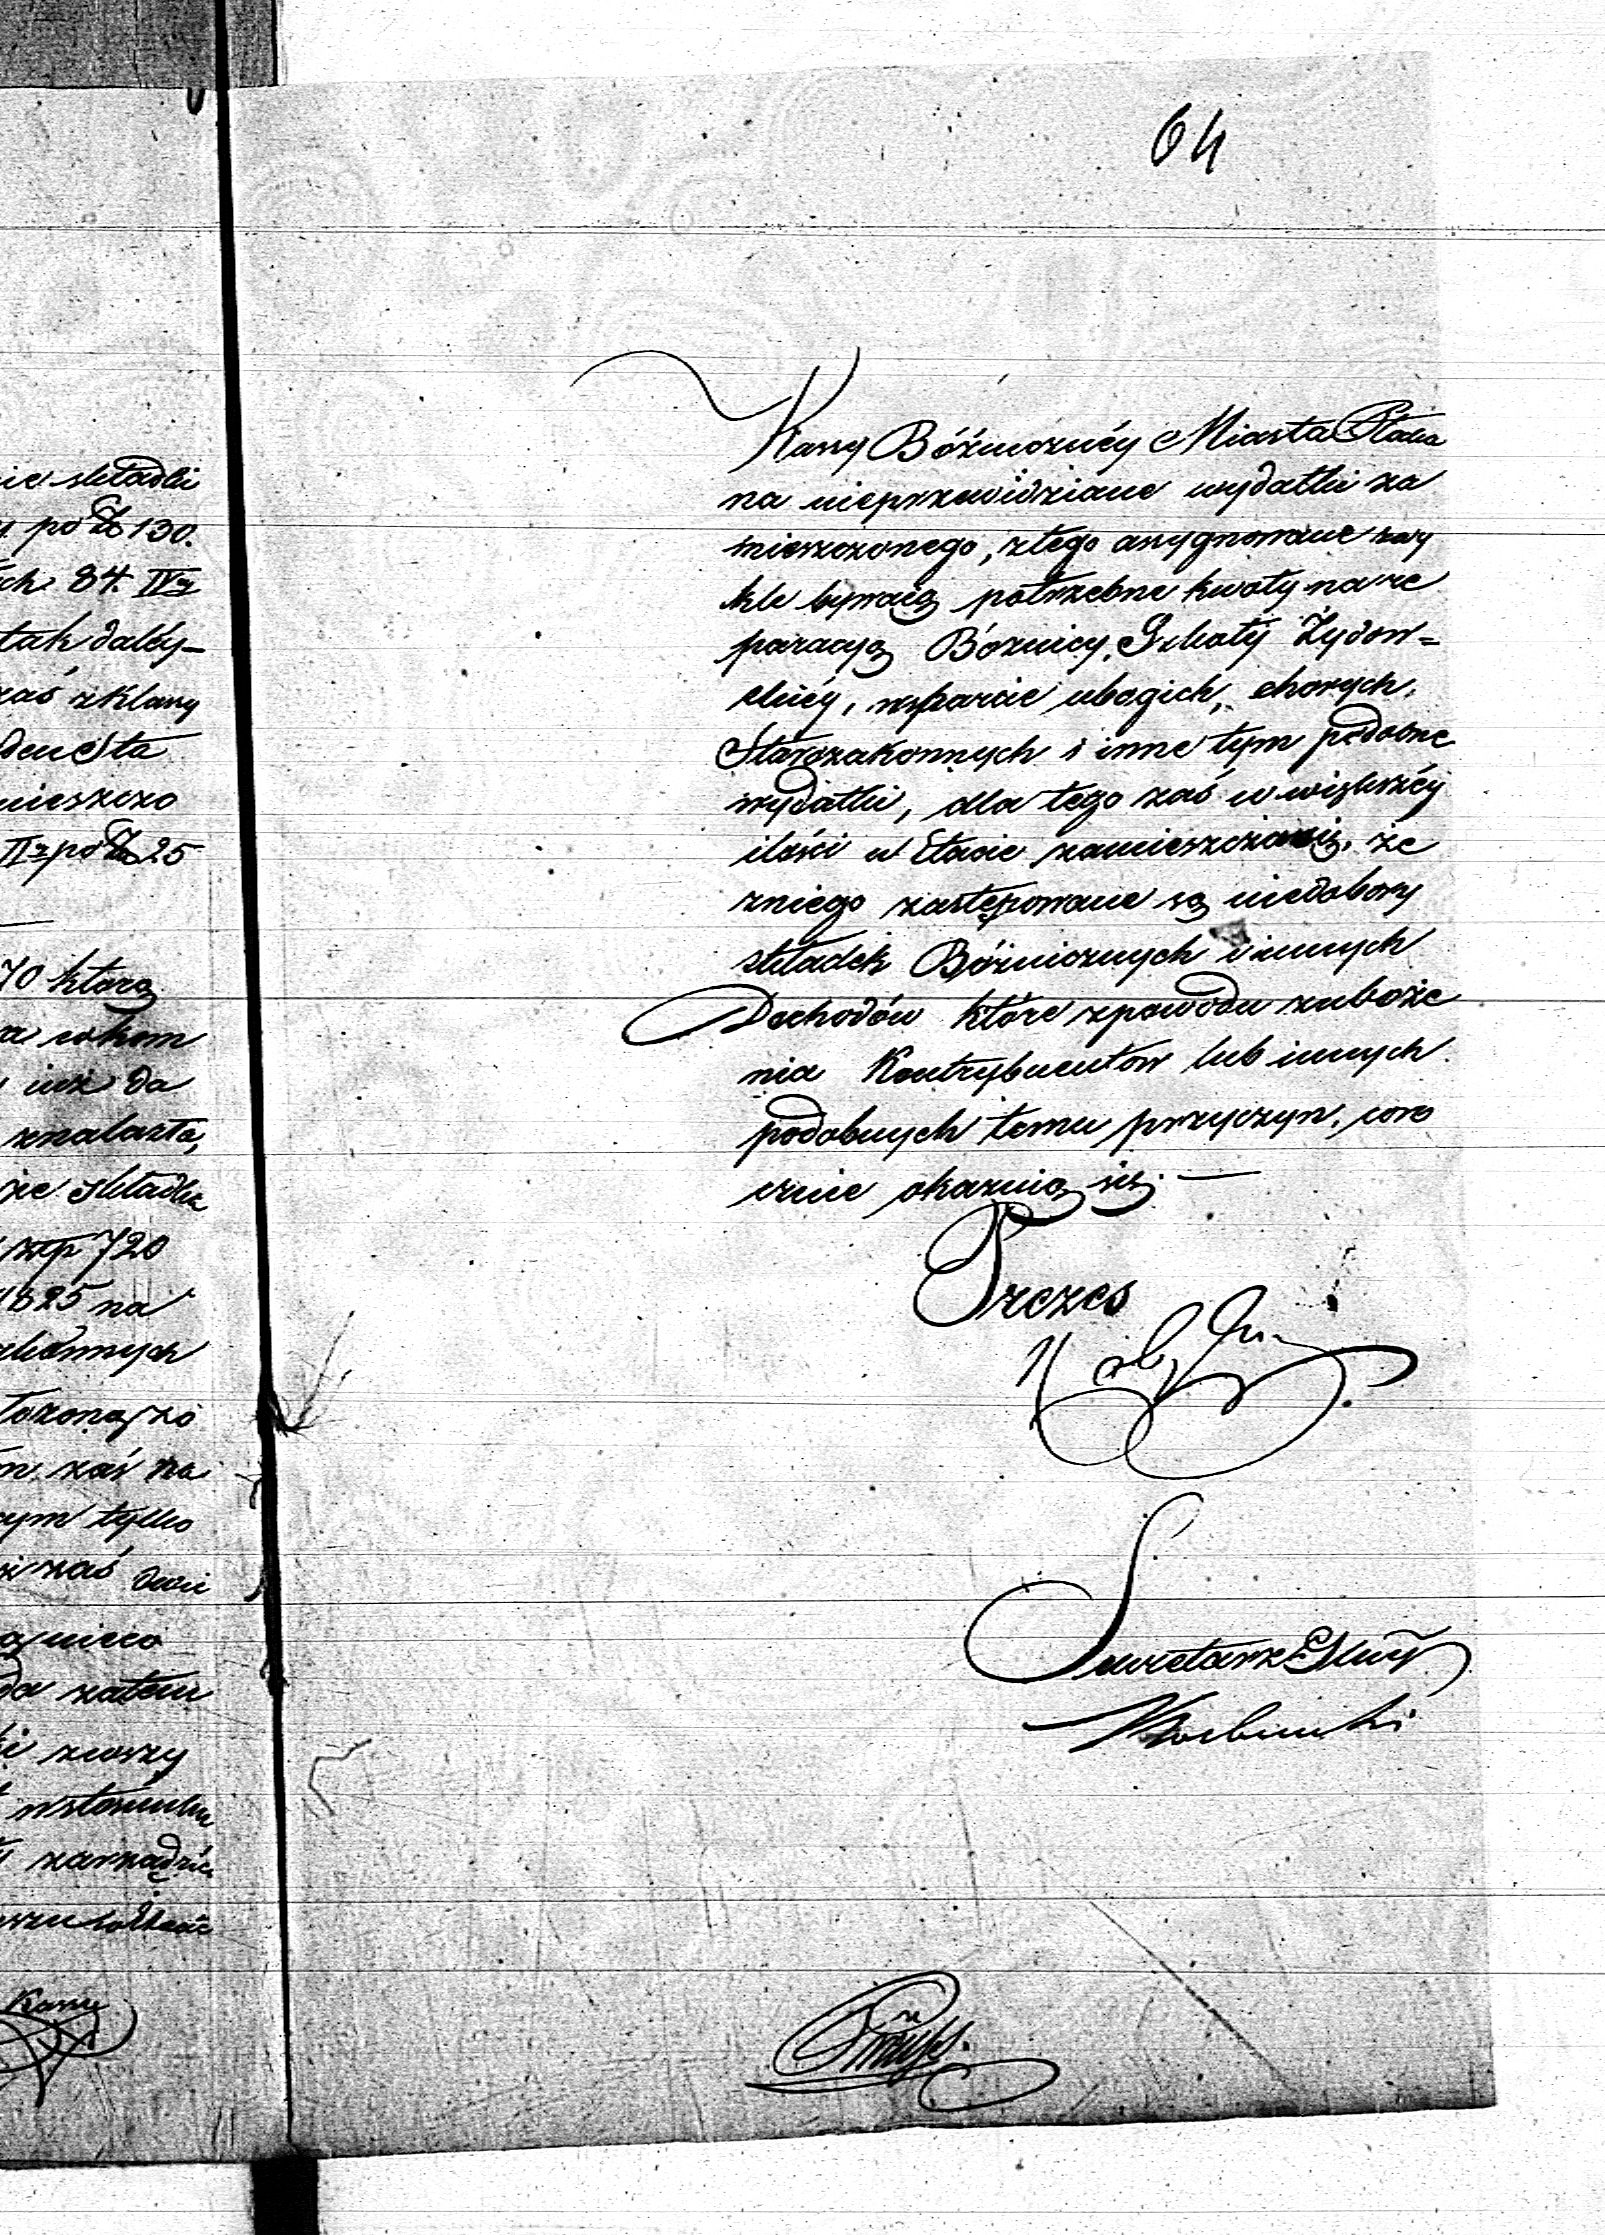 64
Kassy Bóźnicznéy Miasta Płocka
na nieprzewidziane wydatki za
mieszczonego, ztego assygnowane zwy
kle bywaią potrzebne kwoty na re
paracyą Bóznicy, Szkoły Żydow=
skiéy, wsparcie ubogich, chorych,
Starozakonnych i inne tym podobne
wydatki, dla tego zaś w większéy
ilości w Etacie zamieszczaią, że
zniego zastępowane są niedobory
składek Bóżnicznych i innych
Dochodów które zpowodu zuboże
nia Kontrybuentów lub innych
podobnych temu przyczyn, coro
cznie okazuią się. —
Prezes
Sekretarz
ie składki
po 130.
ch 84. IV
tak daléy —
zaś z Klassy
mieszczo
II po 25
70 którą
iuż da
znalazła,
że składka
złp 720
1825 na
zaś na
tylko
zaś dwie
nieco
zatem
w stosunku
Kassy